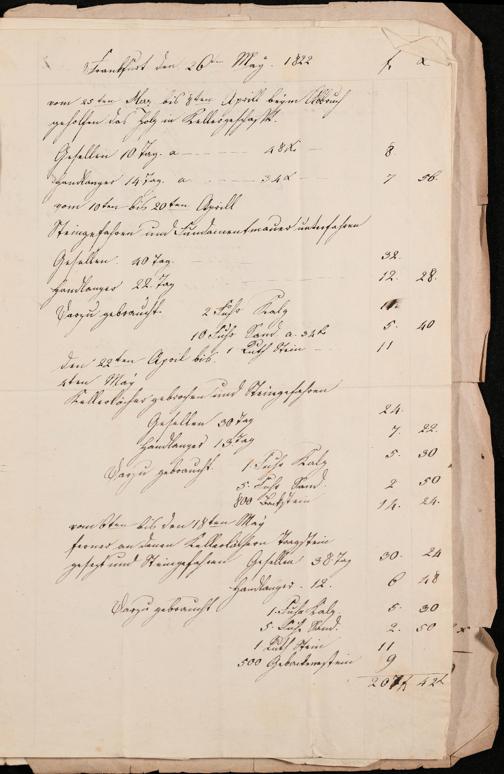 Frankfurt den 26ten May. 1822 f. x
vom 25ten May bis 8ten Aprill beym Abbruch
geholfen das Holz in Kellergeschafft.
Gesellen 10 Tag. a 48x 8.
Handlanger 14 Tag. a 34x 7 56.
vom 10ten bis 20ten Aprill
Steingefahren und Fundamentmauer unterfahren
Gesellen. 40 Tag. 32.
Handlanger 22. Tag 12. 28.
Darzu gebraucht. 2 Fuhr Kalg 11.
10 Fuhr Sand a. 34x 5. 40
den 22ten April bis 1 Ruth Stein 11
4ten May
Kellerlöcher gebrochen und Steingefahren
Gesellen 30 Tag 24.
Handlanger 13 Tag 7. 22.
Darzu gebraucht. 1 Fuhr Kalg 5. 30
5. Fuhr Sand. 2 50
800 Backstein 14. 24.
vom 6ten bis den 18ten May
ferner an denen Kellerlöchern Tragstein
gesezt und Steingefahren Gesellen 38 Tag 30. 24
Handlanger. 12. 6 48
Darzu gebraucht 1. Fuhr Kalg. 5. 30
5. Fuhr Sand. 2. 50
1 Ruth Stein 11
500 Gebackenestein 9
207f 42x